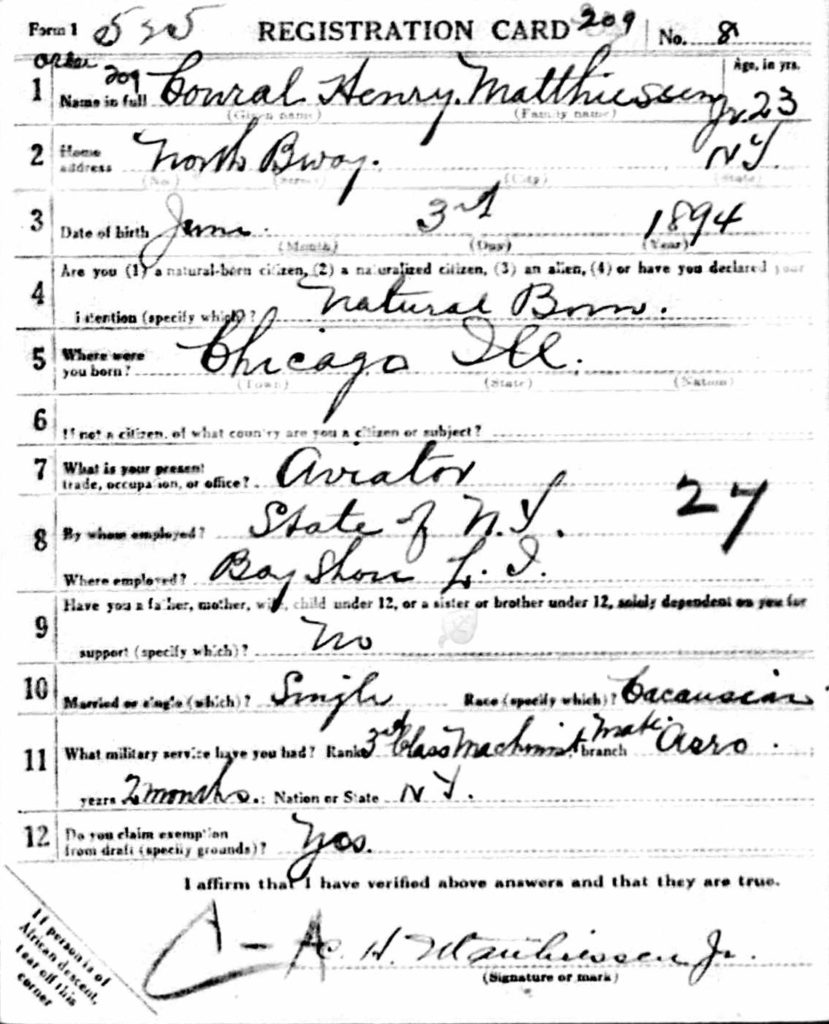 Form 1 525 REGISTRATION CARD 209 No. 8
Order 209
Age, in yrs.
1 Name in full Conrad Henry Matthiessen Jr. 23
(Given name) (Family name)
2 Home address North Bway. NY
(No.) (Street) (City) (State)
3 Date of birth June 3rd 1894
(Month) (Day) (Year)
Are you (1) a natural-born citizen, (2) a naturalized citizen, (3) an alien, (4) or have you declared your
4 intention (specify which)? Natural Born.
5 Where were you born? Chicago Ill.
(Town) (State) (Nation)
6 If not a citizen, of what country are you a citizen or subject?
7 What is your present trade, occupation, or office? Aviator
27
8 By whom employed? State of N.Y.
Where employed? Bay Shore L. I.
Have you a father, mother, wife, child under 12, or a sister or brother under 12, solely dependent on you for
9 support (specify which)? No
10 Married or single (which)? Single Race (specify which)? Cacausian
11 What military service have you had? Rank 3rd Class Machinist Mate. branch Aero.
years 2 months.; Nation or State NY.
12 Do you claim exemption from draft (specify grounds)? Yes.
I affirm that I have verified above answers and that they are true.
C. H. Matthiessen Jr.
(Signature or mark)
If person is of
African descent,
tear off this
corner